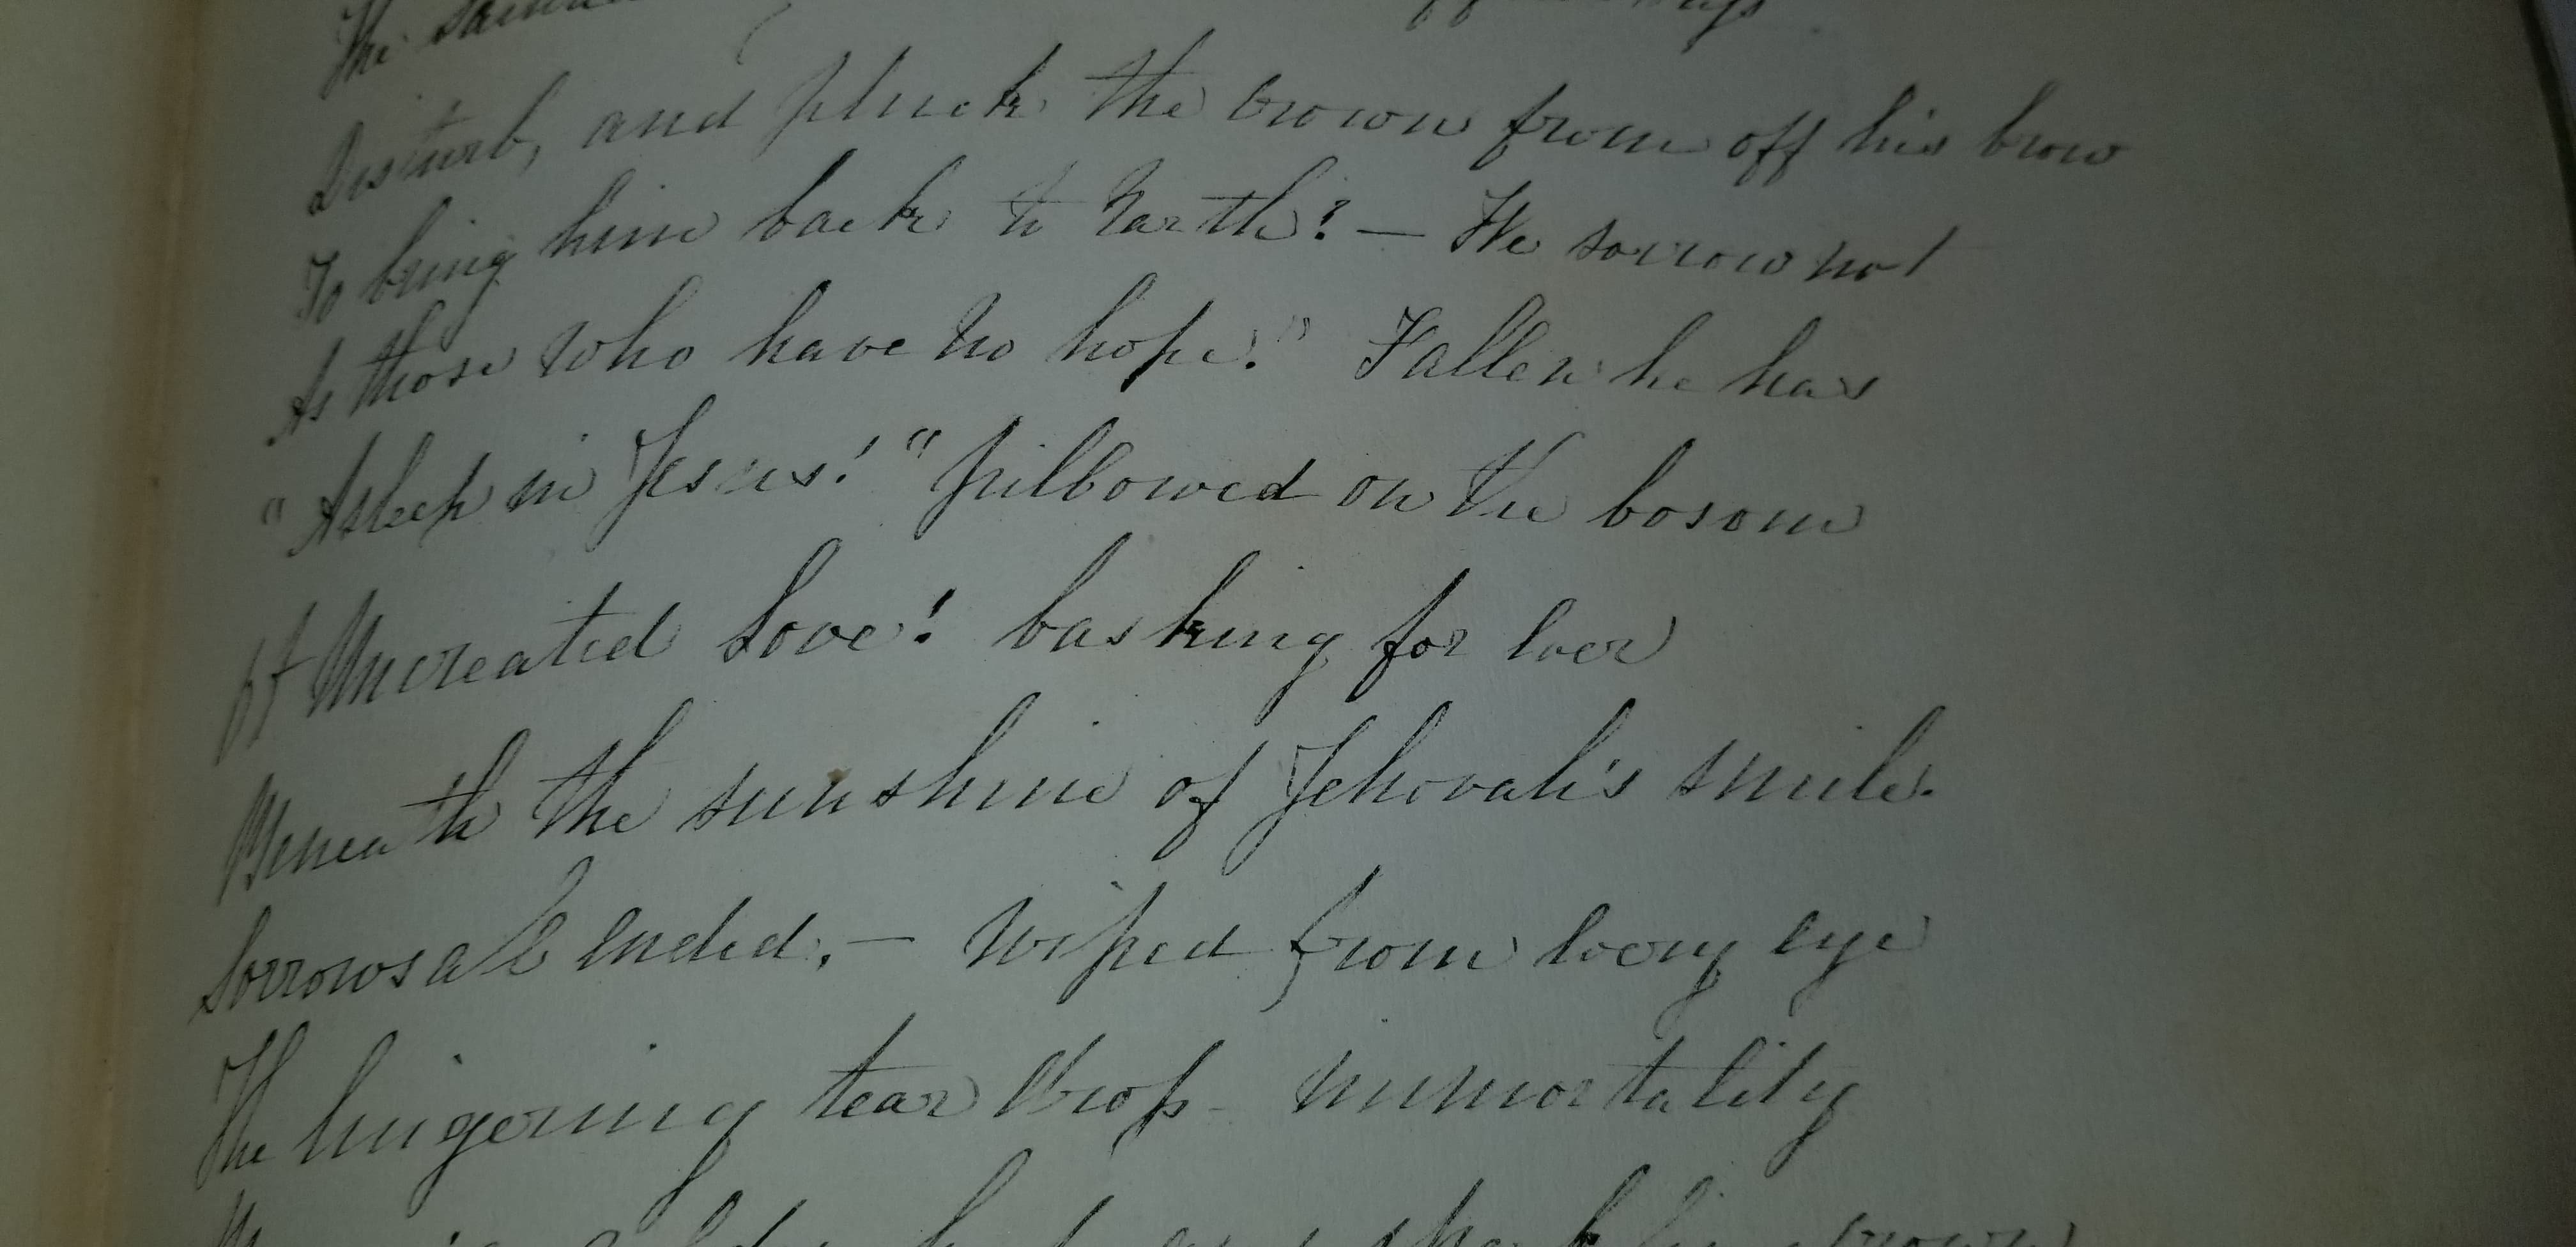 The
Disturb, and pluck the crown from off his brow
To bring him back to Earth? — We sorrow not
As those who have no hope." Fallen he has
"Asleep in Jesus!" pillowed on the bosom
Of Uncreated Love! basking for Ever
Beneath the sunshine of Jehovah's smile.
Sorrows all Ended, — Wiped from Every eye
The lingering tear drop - immortality